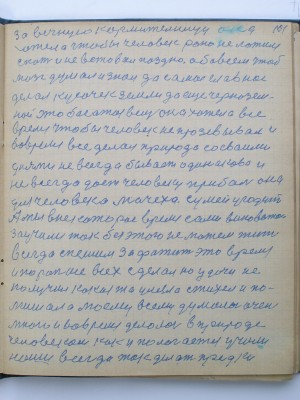 за вечную кормительницу она 101
хотела чтобы человек рано не ложил
спат и не вставал поздно, а бавсем чтоб
мог думал и знал да самое главное
делал кусочек земли да еще чернозем
ной это богатая вещ она хотела все
время чтобы человек не прозевывал и
вовремя все делал природа со своими
дитями не всегда бывает одинаково и
не всегда дает человеку прибыл она
для человека мачеха. сумей угодит
А ты в некоторое время сами виноваты
заучили так без этого не можем жит
всегда спешим захватит это время
и пораньше всех сделал но удачи не
получил какая та целая стихия и по-
мишала моему всему думал очен
много и вовремя делалос в природе
человеком как и пологается учили
наши всегда так делат предки